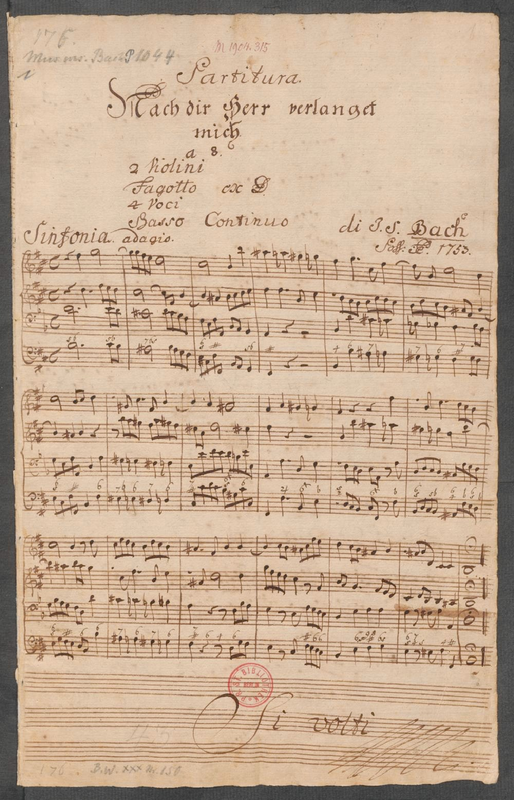 176.
Mus. ms. Bach P 1044
M 1904.315
Partitura.
Nach dir Herr verlanget
mich
a 8.
2 Violini
Fagotto ex D
4 Voci
Basso Continuo di J. S. Bach
Sinfonia. adagio. 1753.
Si volti
176 B.W. XXX